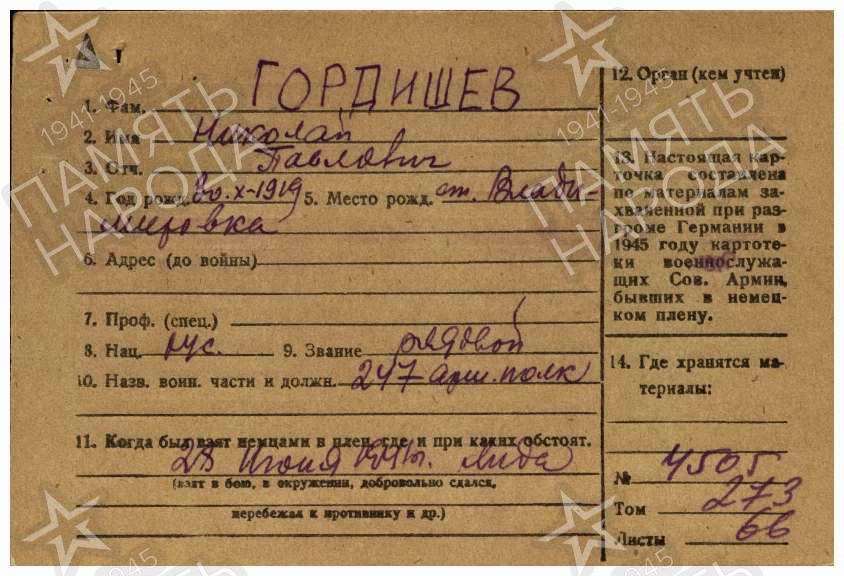 1. Фам. ГОРДИШЕВ
2. Имя Николай
3. Отч. Павлович
4. Год рожд. 20.X-1919 5. Место рожд. ст. Влади-
мировка
6. Адрес (до войны)
7. Проф. (спец.)
8. Нац. рус. 9. Звание рядовой
10. Назв. воин. части и должн. 247 арт. полк
11. Когда был взят немцами в плен, где и при каких обстоят.
28 Июня 1941г. Лида
(взят в бою, в окружении, добровольно сдался,
перебежал к противнику и др.)
12. Орган (кем учтен)
13. Настоящая кар-
точка составлена
по материалам за-
хваченной при раз-
громе Германии в
1945 году картоте-
ки военнослужа-
щих Сов. Армии,
бывших в немец-
ком плену.
14. Где хранятся ма-
териалы:
№ 4505
Том 273
Листы 66
1941-1945
ПАМЯТЬ
НАРОДА
1941-1945
ПАМЯТЬ
НАРОДА